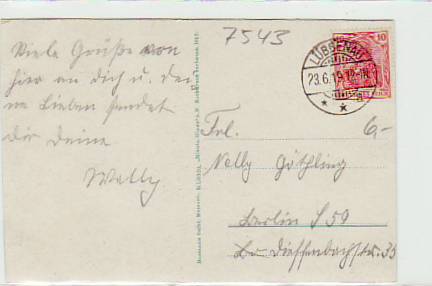 Viele Grüße von
hier an dich u. dei
ne Lieben sendet
dir deine
Welly
7543
LÜBBENAU
23.6.19.12-1N.
10
6,-
Frl.
Nelly Göthling
Berlin S 59
Dieffenbachstr. 35